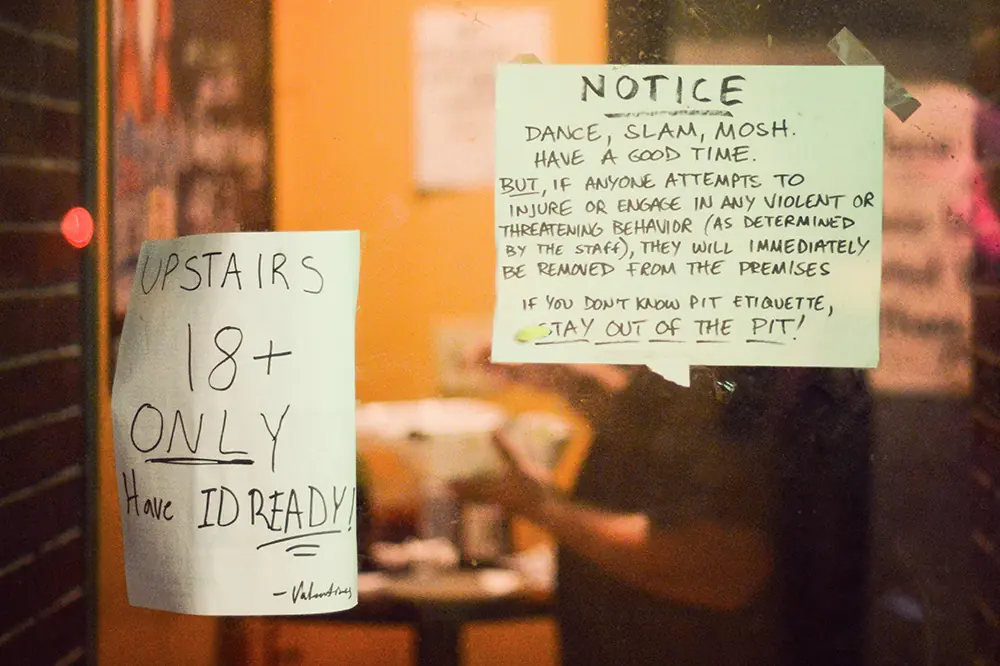 NOTICE
DANCE, SLAM, MOSH.
HAVE A GOOD TIME.
BUT, IF ANYONE ATTEMPTS TO
INJURE OR ENGAGE IN ANY VIOLENT OR
THREATENING BEHAVIOR (AS DETERMINED
BY THE STAFF), THEY WILL IMMEDIATELY
BE REMOVED FROM THE PREMISES
IF YOU DON'T KNOW PIT ETIQUETTE,
STAY OUT OF THE PIT!
UPSTAIRS
18+
ONLY
Have ID READY!
-Valentines